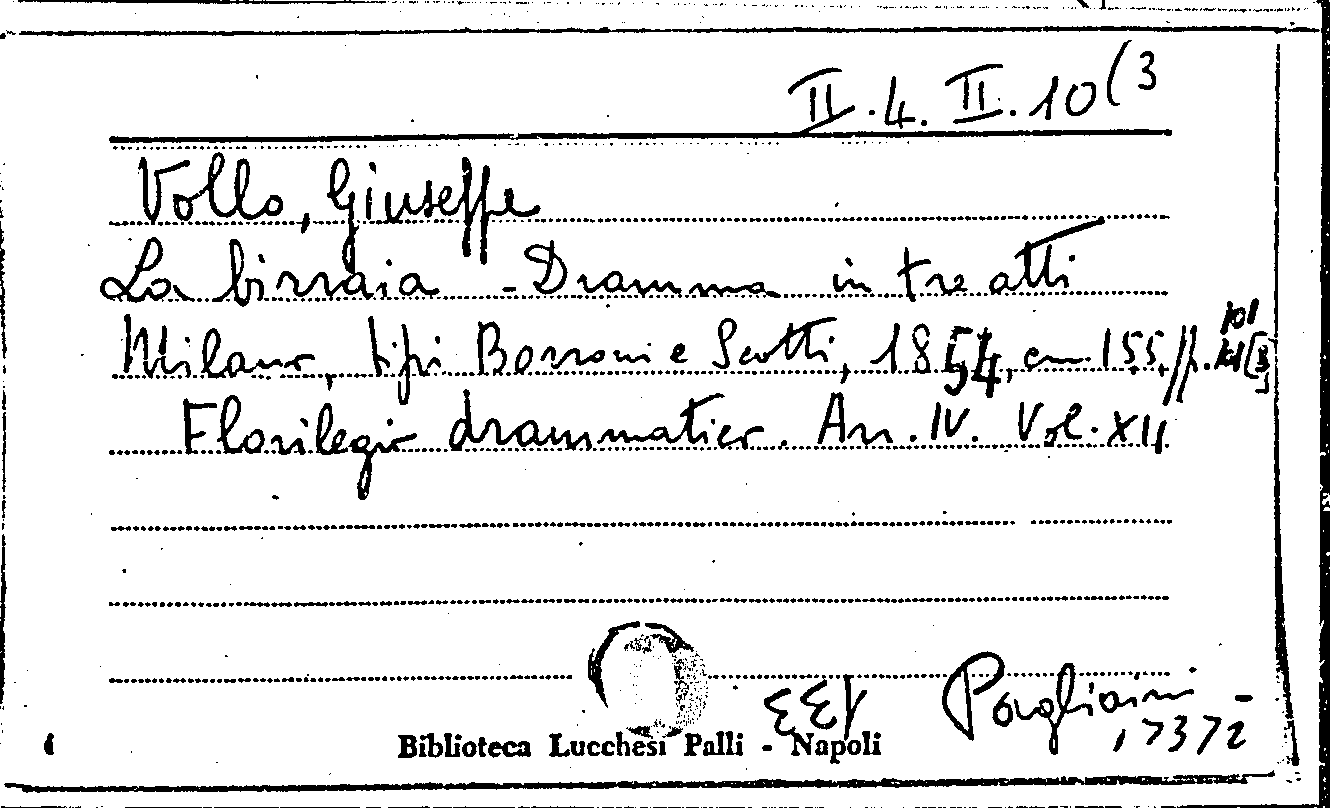 II.4.II.10(3
Vollo, Giuseppe
La birraia - Dramma in tre atti
Milano, tipi Borroni e Scotti, 1854, cm. 15.5, pp. 101 [3]
Florilegio drammatico. An. IV. Vol. XII
Pagliaini -
Biblioteca Lucchesi Palli - Napoli